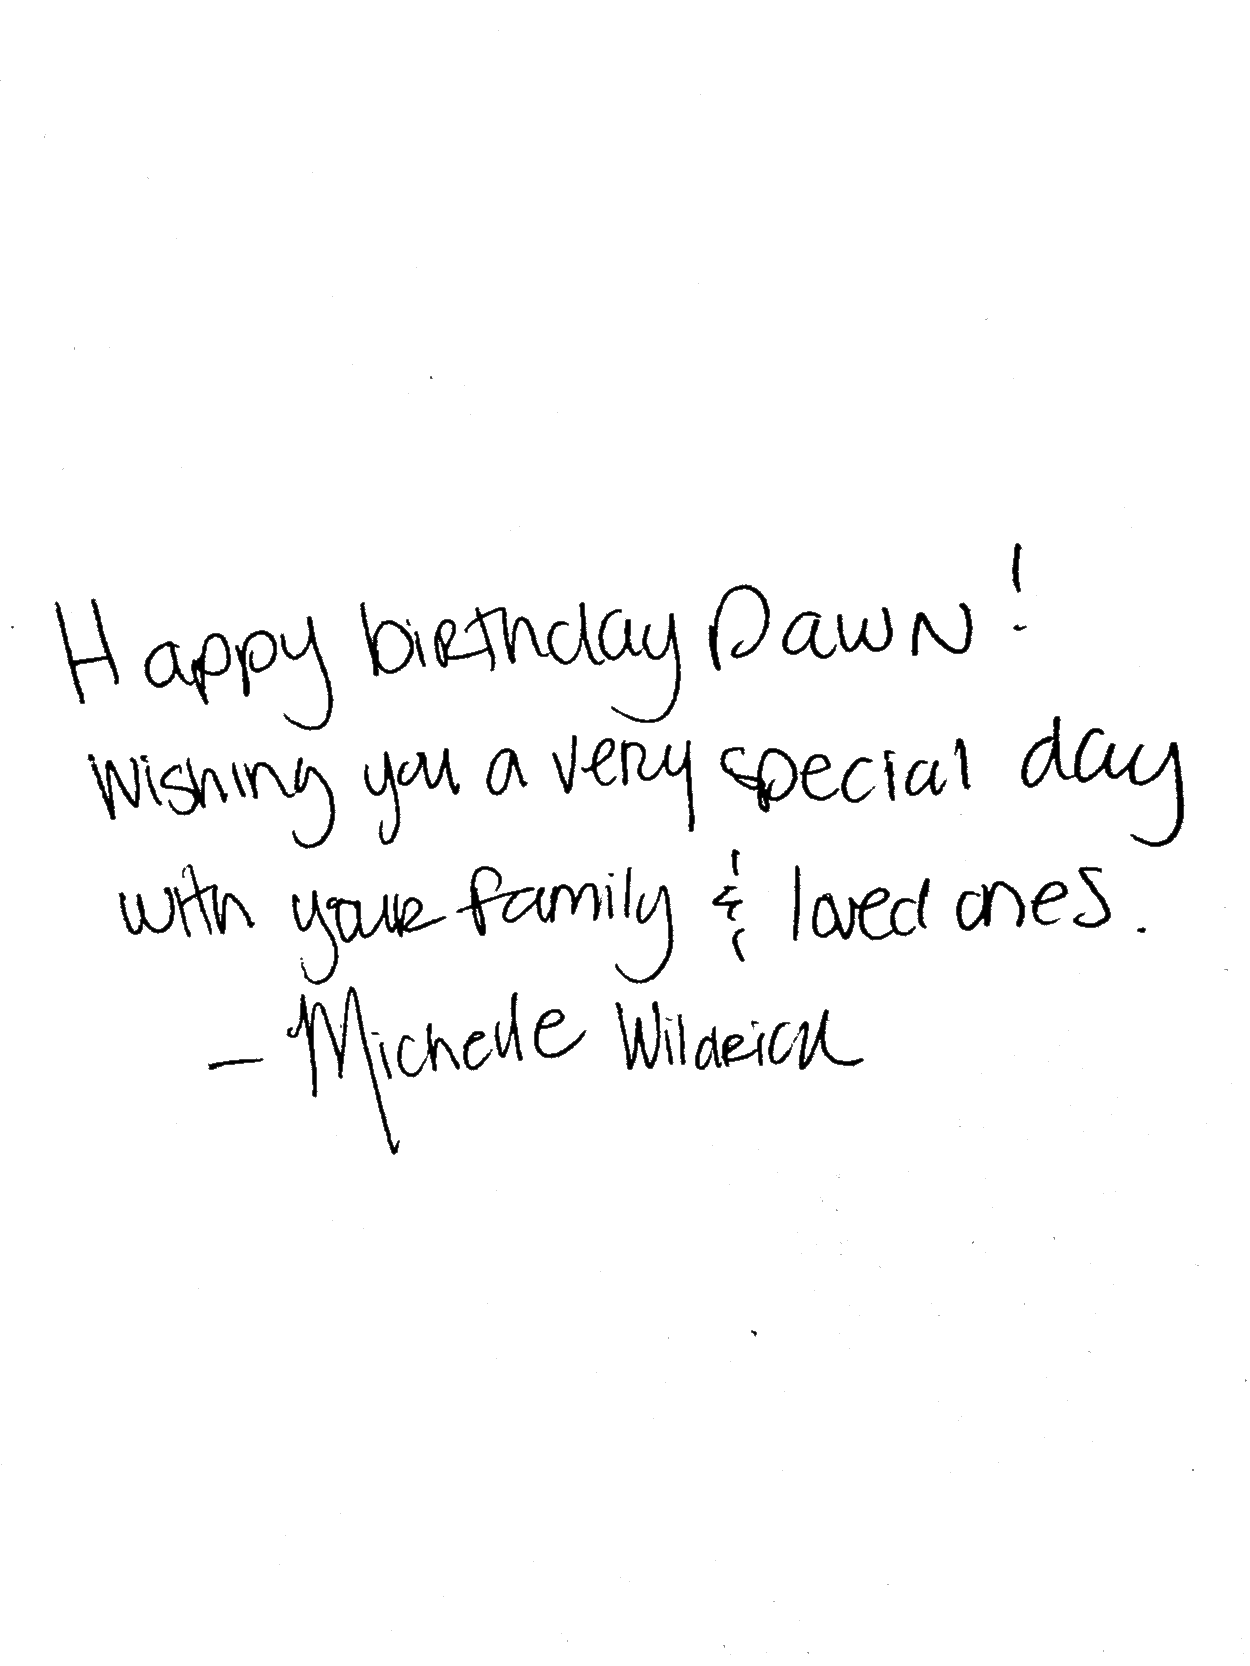 Happy birthday Dawn!
Wishing you a very special day
with your family & loved ones.
- Michelle Wildrick